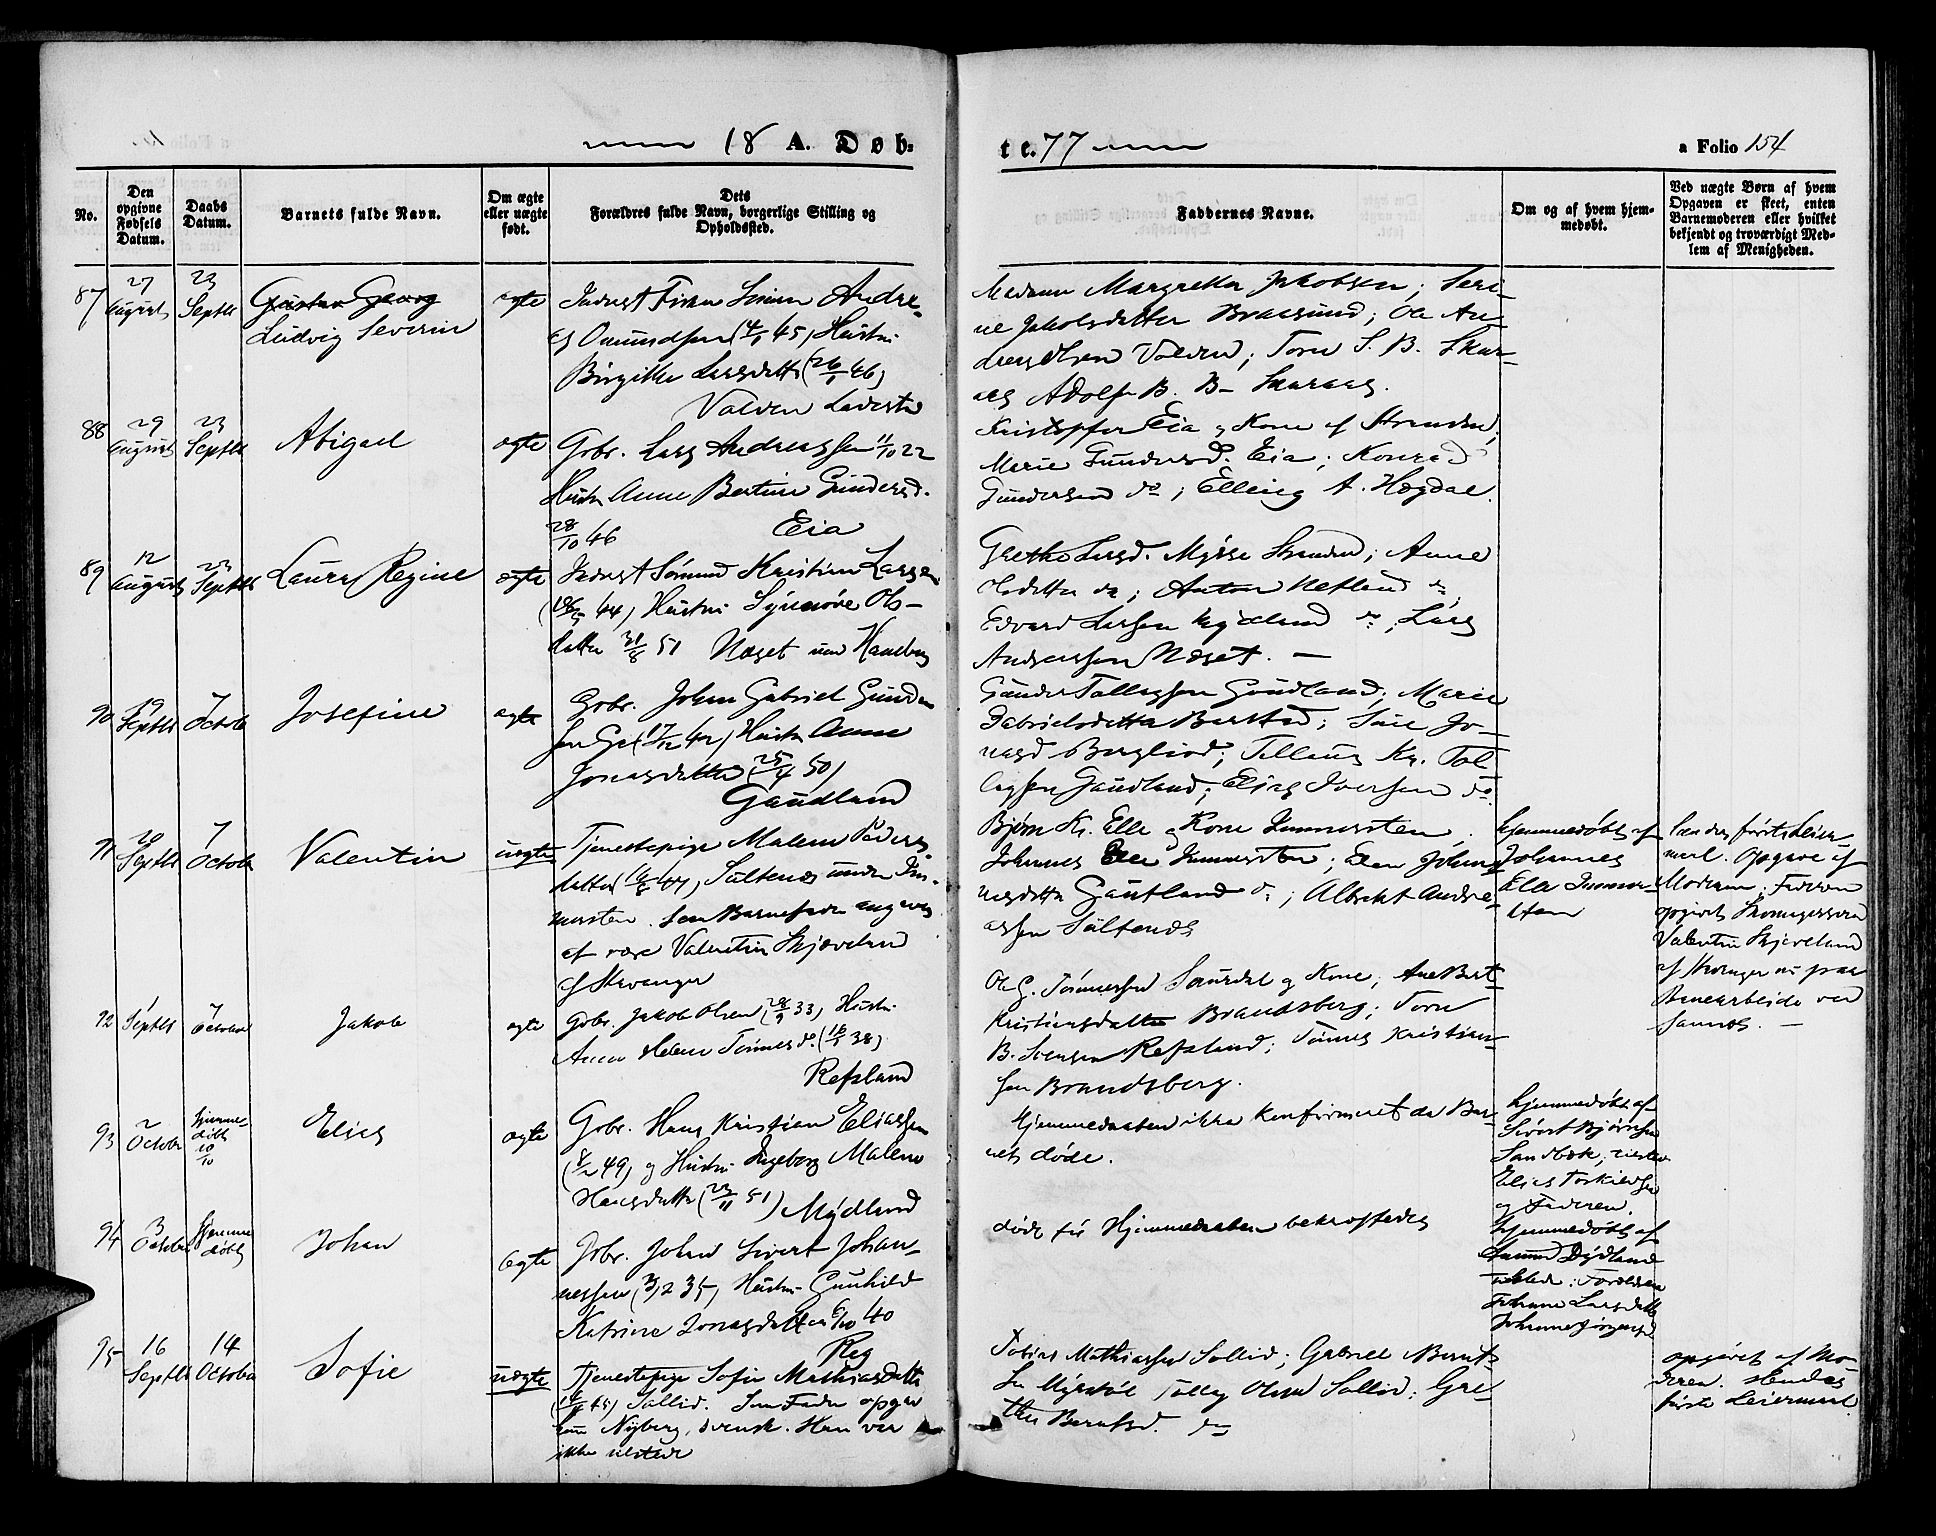 18 A. Døb-
te. 77
a Folio 154
No.
Den opgivne Fødsels Datum.
Daabs Datum.
Barnets fulde Navn.
Om ægte eller uægte født.
Dets Forældres fulde Navn, borgerlige Stilling og Opholdssted.
Faddernes Navne.
Om og af hvem hjem-
medøbt.
Ved uægte Børn af hvem
Opgaven er skeet, enten
Barnemoderen eller hvilket
bekjendt og troværdigt Med-
lem af Menigheden.
87
27 August
23 Septbr
Gustav Georg
Ludvig Severin
ægte
Andre-
as Omundsen (4/1 45) Hustru
Birgitte Larsdatter (26/1 46)
Valden
Madame Margrethe Jakobsen; Seri-
ne Jakobsdatter Brassund; Ole An-
dreas Olsen Valden; Tore S. B. Skar-
aas Adolf B. B. Skaraas.
88
29 August
23 Septbr
Abigael
ægte
Gbr. Lars Andreassen 11/10 22
Hustru Anne Bertine Gundersd.
28/10 46 Eia
Kristoffer Eia og Kone af Stranden;
Marie Gundersd. Eia; Konrad
Gundersen do; Elling A. Hegdal.
89
12 August
23 Septbr
Laura Regine
ægte
Kristian Larsen
44) Hustru Synnøve Ols-
datter 31/8 51 Næset
Grethe Larsd. Mysse Stranden; Anne
Olsdatter do; Anton Netland do;
Edvard Larsen do; Lars
Andersen Næset. —
90
19 Septbr
7 Octob
Josefine
ægte
Gbr. Johan Gabriel Gunder
sen (17/12 42) Hustru Anne
Jonasdatter (25/4 50)
Gaudland
Gunder Tollagsen Gaudland; Marie
Gabrielsdatter Berstad; Sine Jo-
nasd Bergliod; Tellaus Kr. Tol
lagsen Gaudland; Elias Iversen do.
91
20 Septbr
7 Octob
Valentin
uægte
Tjenestepige Malene Peders-
datter Saltenes under Im-
mersten. Som Barnefader angives
at være Valentin Skjæveland
af Stavanger
Bjørn Kr. Elle og Kone Immersten.
Johannes Elle Immersten; Ellen Johan-
nesdatter Gautland do; Albrekt Andre-
assen Saltenes
hjemmedøbt af
Johannes
Elle Immer-
sten
første Leier-
maal. Opgave af
Moderen; Faderen
opgivet
Valentin Skjæveland
af Stavanger nu paa
Banearbeide ved
92
1 Septbr
7 October
Jakob
ægte
Gbr. Jakob Olsen (28/9 33) Hustru
Anna Helene Tønnesd. 38)
Refsland
Ole G. Tønnessen Saurdal og Kone; Ane Berte
Kristiansdatter Brandsberg; Tore
B. Svensen Refsland; Tønnes Kristian-
sen Brandsberg.
93
2 October
Hjemme-
døbt
10/10
Elias
ægte
Gbr. Hans Kristian Eliassen
(8/2 49) og Hustru Ingeborg Malene
Hansdatter (23/11 51) Mydland
Hjemmedaaben ikke konfirmeret da Bar-
net døde.
hjemmedøbt af
Sivert Bjørnsen
Sandbæk;
Elias Torkildsen
og Faderen.
94
3 October
Hjemme
døbt
Johan
ægte
Gbr. Johan Sivert Johan-
nessen (3/12 35), Hustru Gunhild
Katrine Jonasdatter 6/10 40
Reg
døde før Hjemmedaaben bekræftedes
hjemmedøbt af
Dydland
tilstede: Forældrene
Johanne Larsdatter
95
16 Septbr
14 October
Sofie
uægte
Tjenestepige Sofie Mathiasdatter
45) Sollid. Som Fader opgav
hun Nyberg, svensk. Han var
ikke tilstede
Tobias Mathiassen Sollid; Gabriel Bernt-
sen Myrstøl Tolleg Olsen Sollid; Gre-
the Berntsd. do
opgivet af Mo-
deren. Hendes
første Leiermaal.